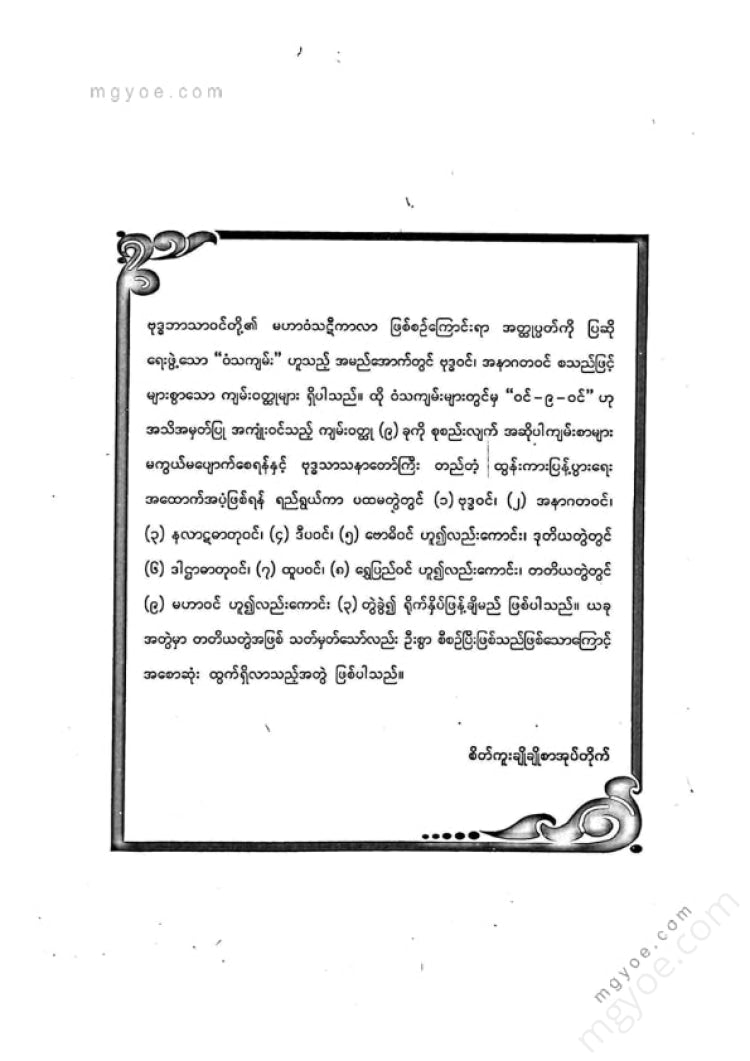 mgyoe.com
ဗုဒ္ဓဘာသာဝင်တို့၏ မဟာဝံသဋီကာလာ ဖြစ်စဉ်ကြောင်းရာ အတ္ထုပ္ပတ်ကို ပြဆို
ရေးဖွဲ့သော “ဝံသကျမ်း” ဟူသည့် အမည်အောက်တွင် ဗုဒ္ဓဝင်၊ အနာဂတဝင် စသည်ဖြင့်
များစွာသော ကျမ်းဝတ္ထုများ ရှိပါသည်။ ထို ဝံသကျမ်းများတွင်မှ “ဝင်–၉–ဝင်” ဟု
အသိအမှတ်ပြု အကျုံးဝင်သည့် ကျမ်းဝတ္ထု (၉) ခုကို စုစည်းလျက် အဆိုပါကျမ်းစာများ
မကွယ်မပျောက်စေရန်နှင့် ဗုဒ္ဓသာသနာတော်ကြီး တည်တံ့ ထွန်းကားပြန့်ပွားရေး
အထောက်အပံ့ဖြစ်ရန် ရည်ရွယ်ကာ ပထမတွဲတွင် (၁) ဗုဒ္ဓဝင်၊ (၂) အနာဂတဝင်၊
(၃) နလာဋဓာတုဝင်၊ (၄) ဒီပဝင်၊ (၅) ဗောဓိဝင် ဟူ၍လည်းကောင်း၊ ဒုတိယတွဲတွင်
(၆) ဒါဌာဓာတုဝင်၊ (၇) ထူပဝင်၊ (၈) ရွှေပြည်ဝင် ဟူ၍လည်းကောင်း၊ တတိယတွဲတွင်
(၉) မဟာဝင် ဟူ၍လည်းကောင်း (၃) တွဲခွဲ၍ ရိုက်နှိပ်ဖြန့်ချိမည် ဖြစ်ပါသည်။ ယခု
အတွဲမှာ တတိယတွဲအဖြစ် သတ်မှတ်သော်လည်း ဦးစွာ စီစဉ်ပြီးဖြစ်သည်ဖြစ်သောကြောင့်
အစောဆုံး ထွက်ရှိလာသည့်အတွဲ ဖြစ်ပါသည်။
စိတ်ကူးချိုချိုစာအုပ်တိုက်
mgyoe.com
mgyoe.com